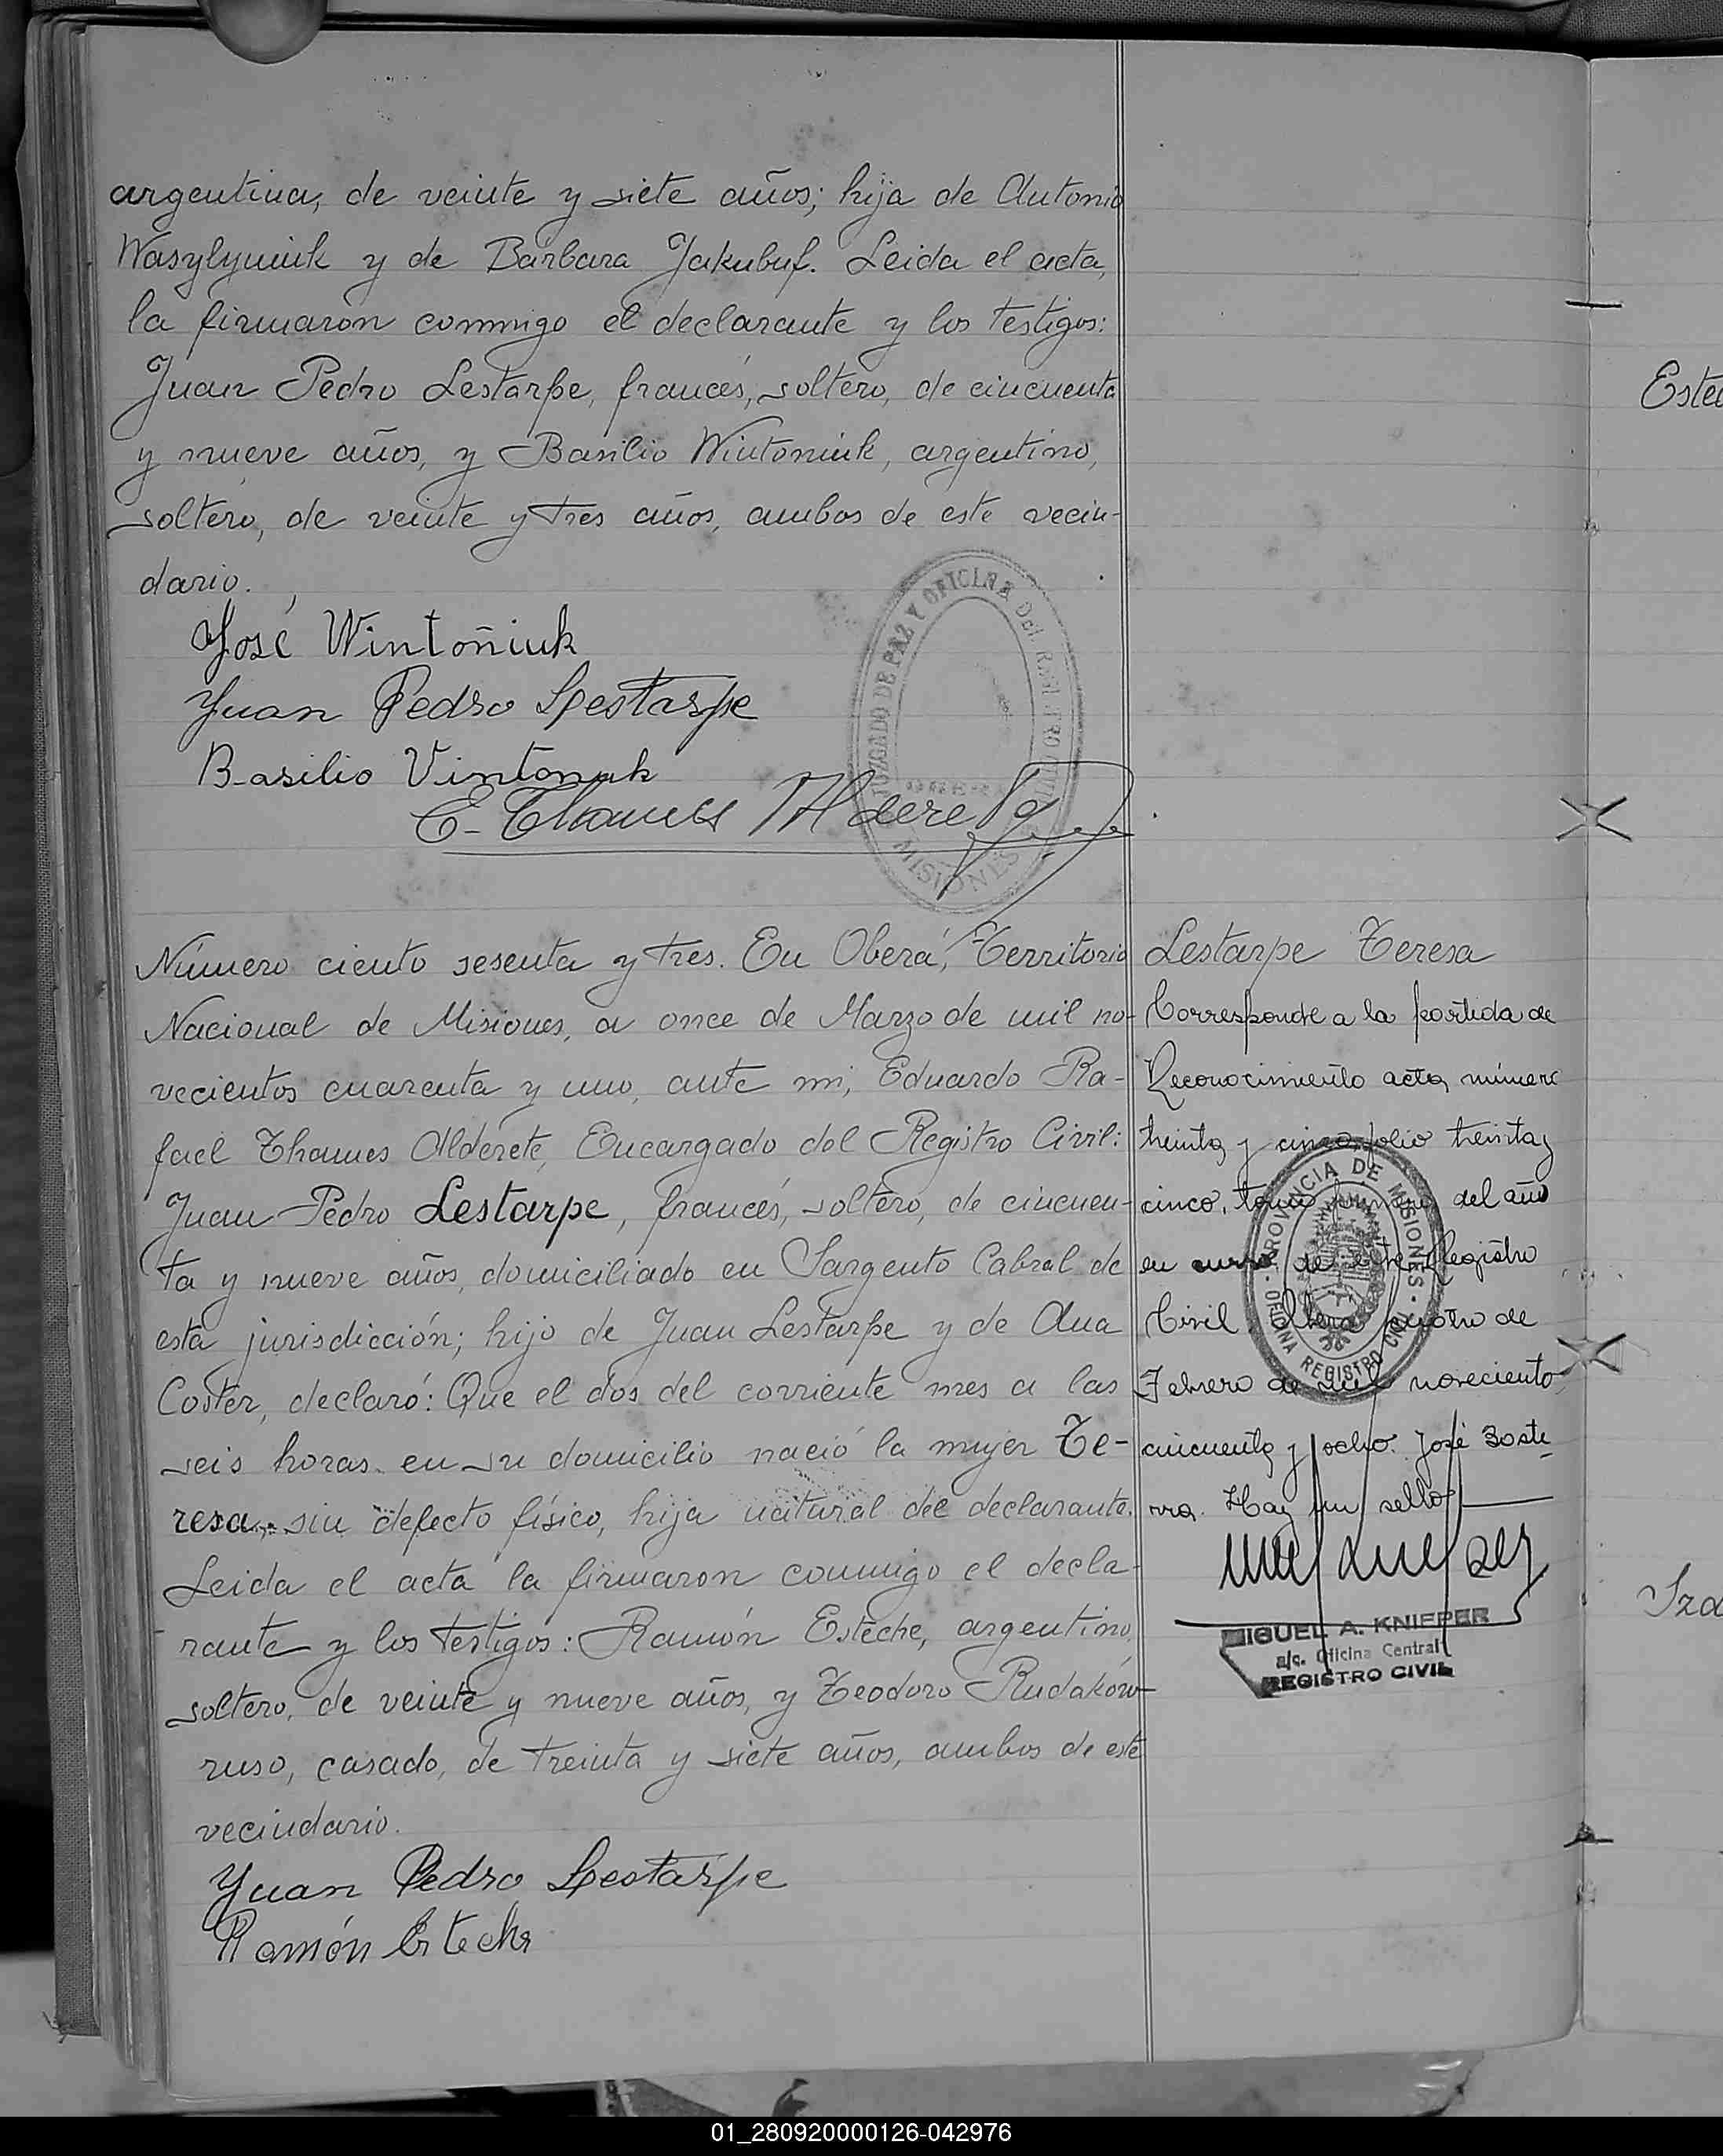 argentina, de veinte y siete años; hija de Antonio
Wasylyniuk y de Bárbara Jakubuf. Leida el acta,
la firmaron conmigo el declarante y los testigos:
Juan Pedro Lestarpe, francés, soltero, de cincuenta
y nueve años, y Basilio Wintoniuk, argentino,
soltero, de veinte y tres años, ambos de este vecin-
dario.
José Wintoñiuk
Juan Pedro Lestarpe
Basilio Vintonuk
E. Thames Alderete
JUZGADO DE PAZ Y OFICINA DEL REGISTRO CIVIL
OBERA
MISIONES
Número ciento sesenta y tres. En Oberá, Territorio
Nacional de Misiones, a once de Marzo de mil no-
vecientos cuarenta y uno, ante mi, Eduardo Ra-
fael Thames Alderete, Encargado del Registro Civil:
Juan Pedro Lestarpe, francés, soltero, de cincuen-
ta y nueve años, domiciliado en Sargento Cabral de
esta jurisdicción; hijo de Juan Lestarpe y de Ana
Coster, declaró: Que el dos del corriente mes a las
seis horas en su domicilio nació la mujer Te-
resa, sin defecto físico, hija natural del declarante.
Leida el acta la firmaron conmigo el decla-
rante y los testigos: Ramón Esteche, argentino,
soltero, de veinte y nueve años, y Teodoro Rudaków
ruso, casado, de treinta y siete años, ambos de este
vecindario.
Juan Pedro Lestarpe
Ramón Esteche
Lestarpe Teresa
Corresponde a la partida de
Reconocimiento acta número
treinta y cinco, folio treinta y
cinco, tomo primero del año
en curso de este Registro
Civil Oberá, cuatro de
Febrero de mil novecientos
cincuenta y ocho. José Zoste
rra. Hay un sello
PROVINCIA DE MISIONES
OFICINA REGISTRO CIVIL
MIGUEL A. KNIEPER
a/c. Oficina Central
REGISTRO CIVIL
Este
Iza
01_280920000126-042976